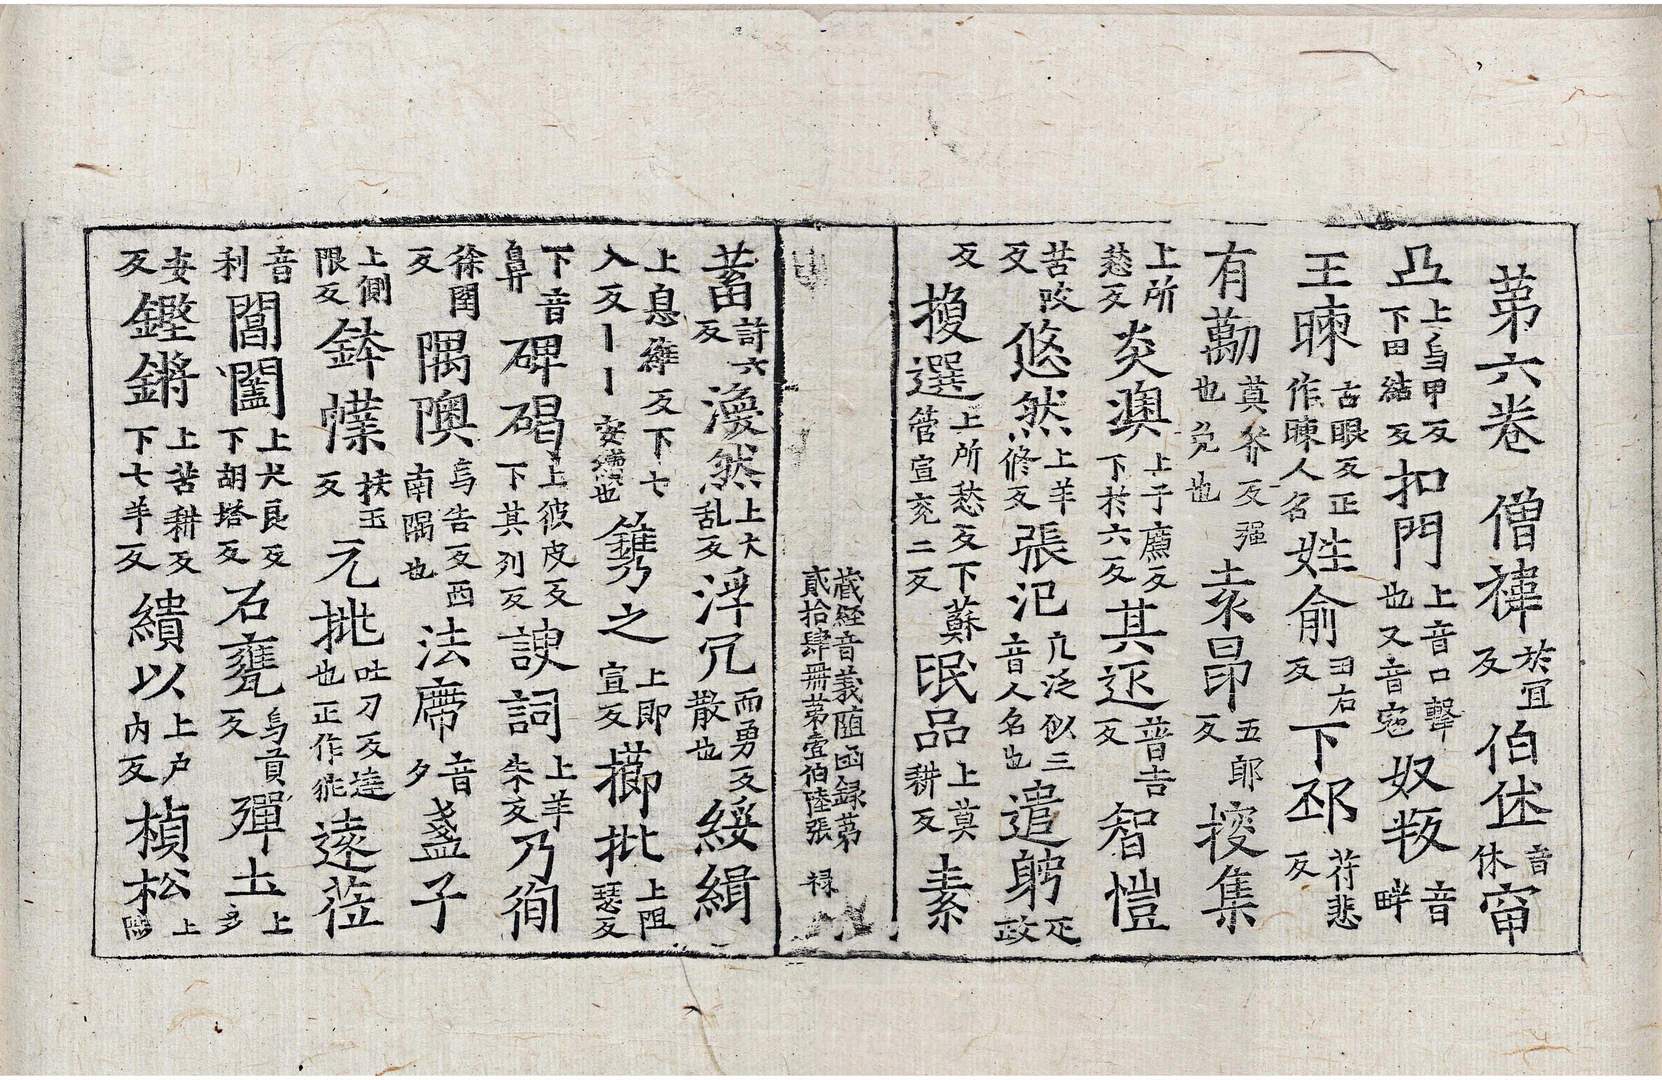 苐六卷　僧褘於冝反伯𠇾音休窋
凸上烏甲反下田結反扣門上音口擊也又音宼奴叛音畔
王暕古眼反正作暕人名姓俞羊右反下邳苻悲反
有勱莫芥反强也免也袁昂五郎反㨶集
上所愁反炎澳上子廉反下扵六反其迊音告反智愷
苦咬反悠然上羊修反張氾亢泛似三音人名也遣躬疋政
反搜選上所愁反下蘇管宣兖二反眠品上莫耕反素
藏経音義随函録苐貳拾肆冊苐壹伯陸張　禄
蓄許六反渙然上火乱反浮冗而勇反散也綏緝
上息維反下七入反丨丨安㦟也鐫之上即宣反擲批上阻瑟反
下音鼻碑碣上彼皮反下其列反諛詞上羊朱反乃徇
徐閏反隅隩烏告反西南隅也法席音夕盞子
上側限反鉢幞扶玉反元挑吐刀反逺也正作𦨣逺莅
音利閶闔上尺良反下胡塔反石甕烏貢反彈土上多
安反鏗鏘上苦耕反下七羊反繢以上户内反楨松上